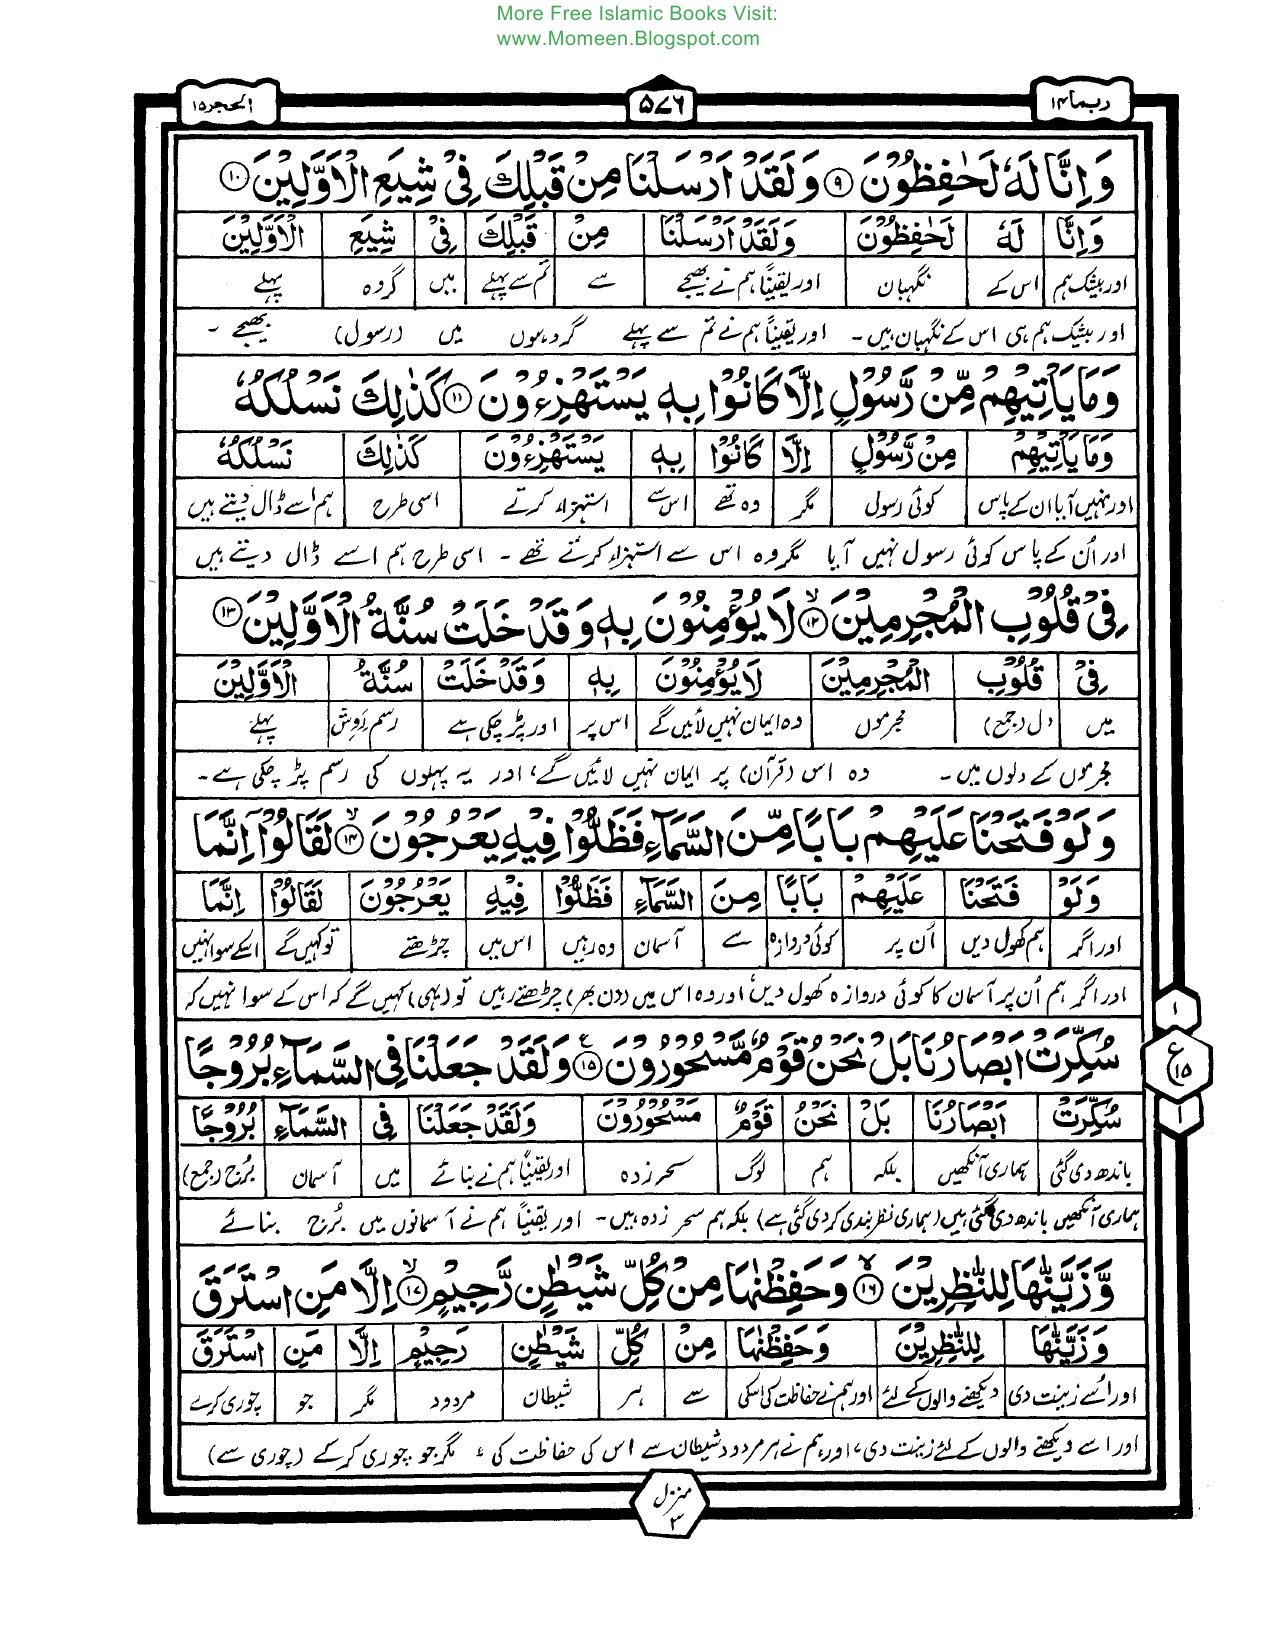 More Free Islamic Books Visit:
www.Momeen.Blogspot.com
ربما ۱۴
۵۷۶
الحجر ۱۵
وَاِنَّا لَهٗ لَحٰفِظُوْنَ ۹ وَلَقَدْ اَرْسَلْنَا مِنْ قَبْلِكَ فِیْ شِیَعِ الْاَوَّلِیْنَ ۱۰
وَاِنَّا لَهٗ لَحٰفِظُوْنَ وَلَقَدْ اَرْسَلْنَا مِنْ قَبْلِكَ فِیْ شِیَعِ الْاَوَّلِیْنَ
اور بیشک ہم اس کے نگہبان اور یقیناً ہم نے بھیجے سے تم سے پہلے میں گروہ پہلے
اور بیشک ہم ہی اس کے نگہبان ہیں۔ اور یقیناً ہم نے تم سے پہلے گروہوں میں (رسول) بھیجے ۔
وَمَا یَاْتِیْهِمْ مِّنْ رَّسُوْلٍ اِلَّا كَانُوْا بِهٖ یَسْتَهْزِءُوْنَ ۱۱ كَذٰلِكَ نَسْلُكُهٗ
وَمَا یَاْتِیْهِمْ مِنْ رَّسُوْلٍ اِلَّا كَانُوْا بِهٖ یَسْتَهْزِءُوْنَ كَذٰلِكَ نَسْلُكُهٗ
اور نہیں آیا ان کے پاس کوئی رسول مگر وہ تھے اس سے استہزاء کرتے اسی طرح ہم اسے ڈال دیتے ہیں
اور اُن کے پاس کوئی رسول نہیں آیا مگر وہ اس سے استہزاء کرتے تھے ۔ اسی طرح ہم اسے ڈال دیتے ہیں
فِیْ قُلُوْبِ الْمُجْرِمِیْنَ ۱۲ لَا یُؤْمِنُوْنَ بِهٖ وَقَدْ خَلَتْ سُنَّةُ الْاَوَّلِیْنَ ۱۳
فِیْ قُلُوْبِ الْمُجْرِمِیْنَ لَا یُؤْمِنُوْنَ بِهٖ وَقَدْ خَلَتْ سُنَّةُ الْاَوَّلِیْنَ
میں دل (جمع) مجرموں وہ ایمان نہیں لائیں گے اس پر اور پڑ چکی ہے رسم، رَوِش پہلے
مجرموں کے دلوں میں۔ وہ اس (قرآن) پر ایمان نہیں لائیں گے، اور یہ پہلوں کی رسم پڑ چکی ہے۔
وَلَوْ فَتَحْنَا عَلَیْهِمْ بَابًا مِّنَ السَّمَآءِ فَظَلُّوْا فِیْهِ یَعْرُجُوْنَ ۱۴ لَقَالُوْۤا اِنَّمَا
وَلَوْ فَتَحْنَا عَلَیْهِمْ بَابًا مِنَ السَّمَآءِ فَظَلُّوْا فِیْهِ یَعْرُجُوْنَ لَقَالُوْا اِنَّمَا
اور اگر ہم کھول دیں اُن پر کوئی دروازہ سے آسمان وہ رہیں اس میں چڑھتے تو کہیں گے اسکے سوا نہیں
اور اگر ہم اُن پر آسمان کا کوئی دروازہ کھول دیں، اور وہ اس میں (دن بھر) چڑھتے رہیں تو (یہی) کہیں گے کہ اس کے سوا نہیں کہ
سُكِّرَتْ اَبْصَارُنَا بَلْ نَحْنُ قَوْمٌ مَّسْحُوْرُوْنَ ۱۵ وَلَقَدْ جَعَلْنَا فِی السَّمَآءِ بُرُوْجًا
سُكِّرَتْ اَبْصَارُنَا بَلْ نَحْنُ قَوْمٌ مَسْحُوْرُوْنَ وَلَقَدْ جَعَلْنَا فِی السَّمَآءِ بُرُوْجًا
باندھ دی گئی ہماری آنکھیں بلکہ ہم لوگ سحر زدہ اور یقیناً ہم نے بنائے میں آسمان بُرج (جمع)
ہماری آنکھیں باندھ دی گئی ہیں (ہماری نظر بندی کر دی گئی ہے) بلکہ ہم سحر زدہ ہیں۔ اور یقیناً ہم نے آسمانوں میں بُرج بنائے
وَّزَیَّنّٰهَا لِلنّٰظِرِیْنَ ۱۶ وَحَفِظْنٰهَا مِنْ كُلِّ شَیْطٰنٍ رَّجِیْمٍ ۱۷ اِلَّا مَنِ اسْتَرَقَ
وَزَیَّنّٰهَا لِلنّٰظِرِیْنَ وَحَفِظْنٰهَا مِنْ كُلِّ شَیْطٰنٍ رَجِیْمٍ اِلَّا مَنِ اسْتَرَقَ
اور اُسے زینت دی دیکھنے والوں کے لئے اور ہم نے حفاظت کی اسکی سے ہر شیطان مردود مگر جو چوری کرے
اور اسے دیکھنے والوں کے لئے زینت دی، اور ہم نے ہر مردود شیطان سے اس کی حفاظت کی، مگر جو چوری کرکے (چوری سے)
۱
ع ۱۵
۱
منزل ۳